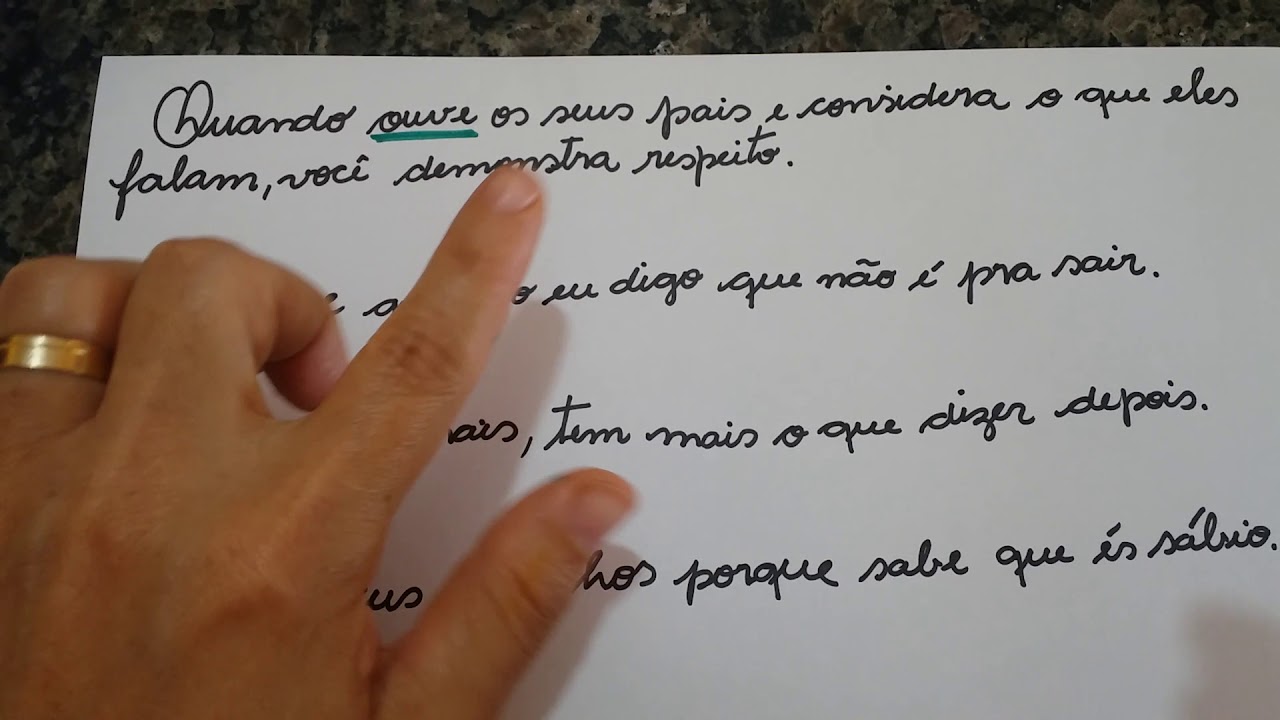 Quando ouve os seus pais e considera o que eles
falam, você demonstra respeito.
eu digo que não é pra sair.
tem mais o que dizer depois.
porque sabe que és sábio.